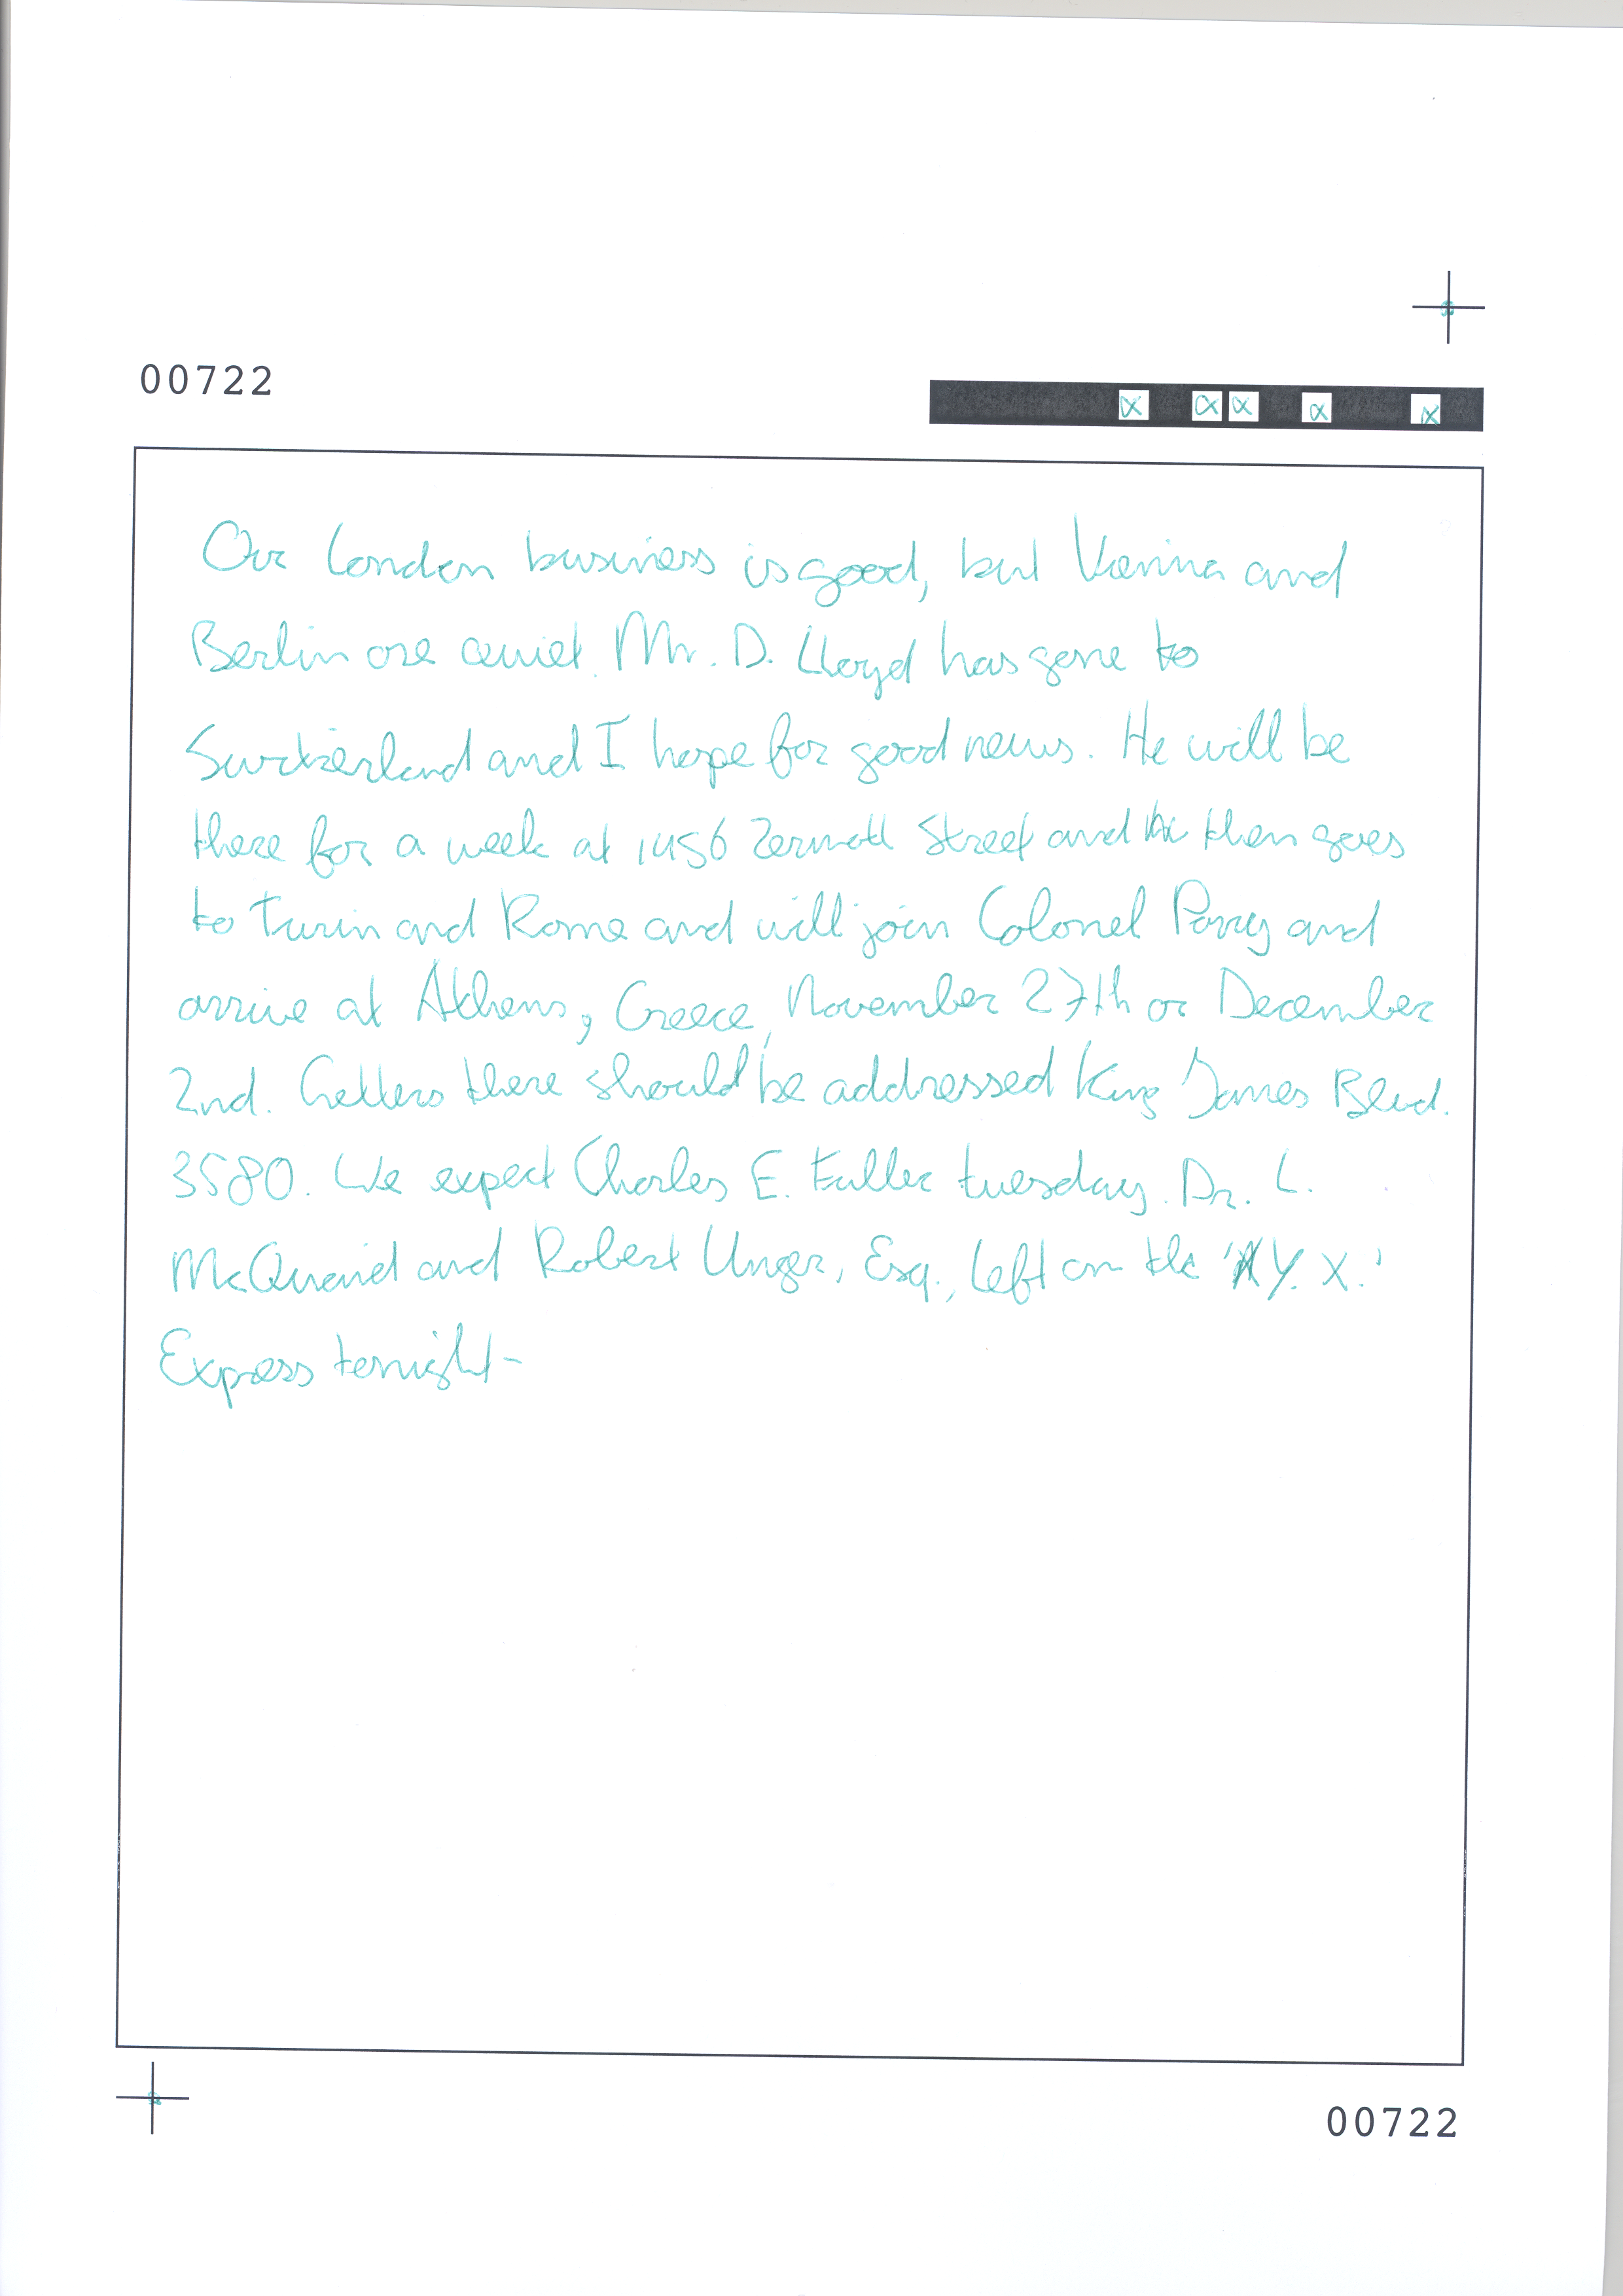 00722
Our London business is good, but Vienna and
Berlin are quiet. Mr. D. Lloyd has gone to
Switzerland and I hope for good news. He will be
there for a week at 1456 Zermatt Street and then goes
to Turin and Rome and will join Colonel Parry and
arrive at Athens, Greece, November 27th or December
2nd. Letters there should be addressed King James Blvd.
3580. We expect Charles E. Fuller tuesday. Dr. L.
McQuaid and Robert Unger, Esq., left on the 'Y. X.'
Express tonight-
00722